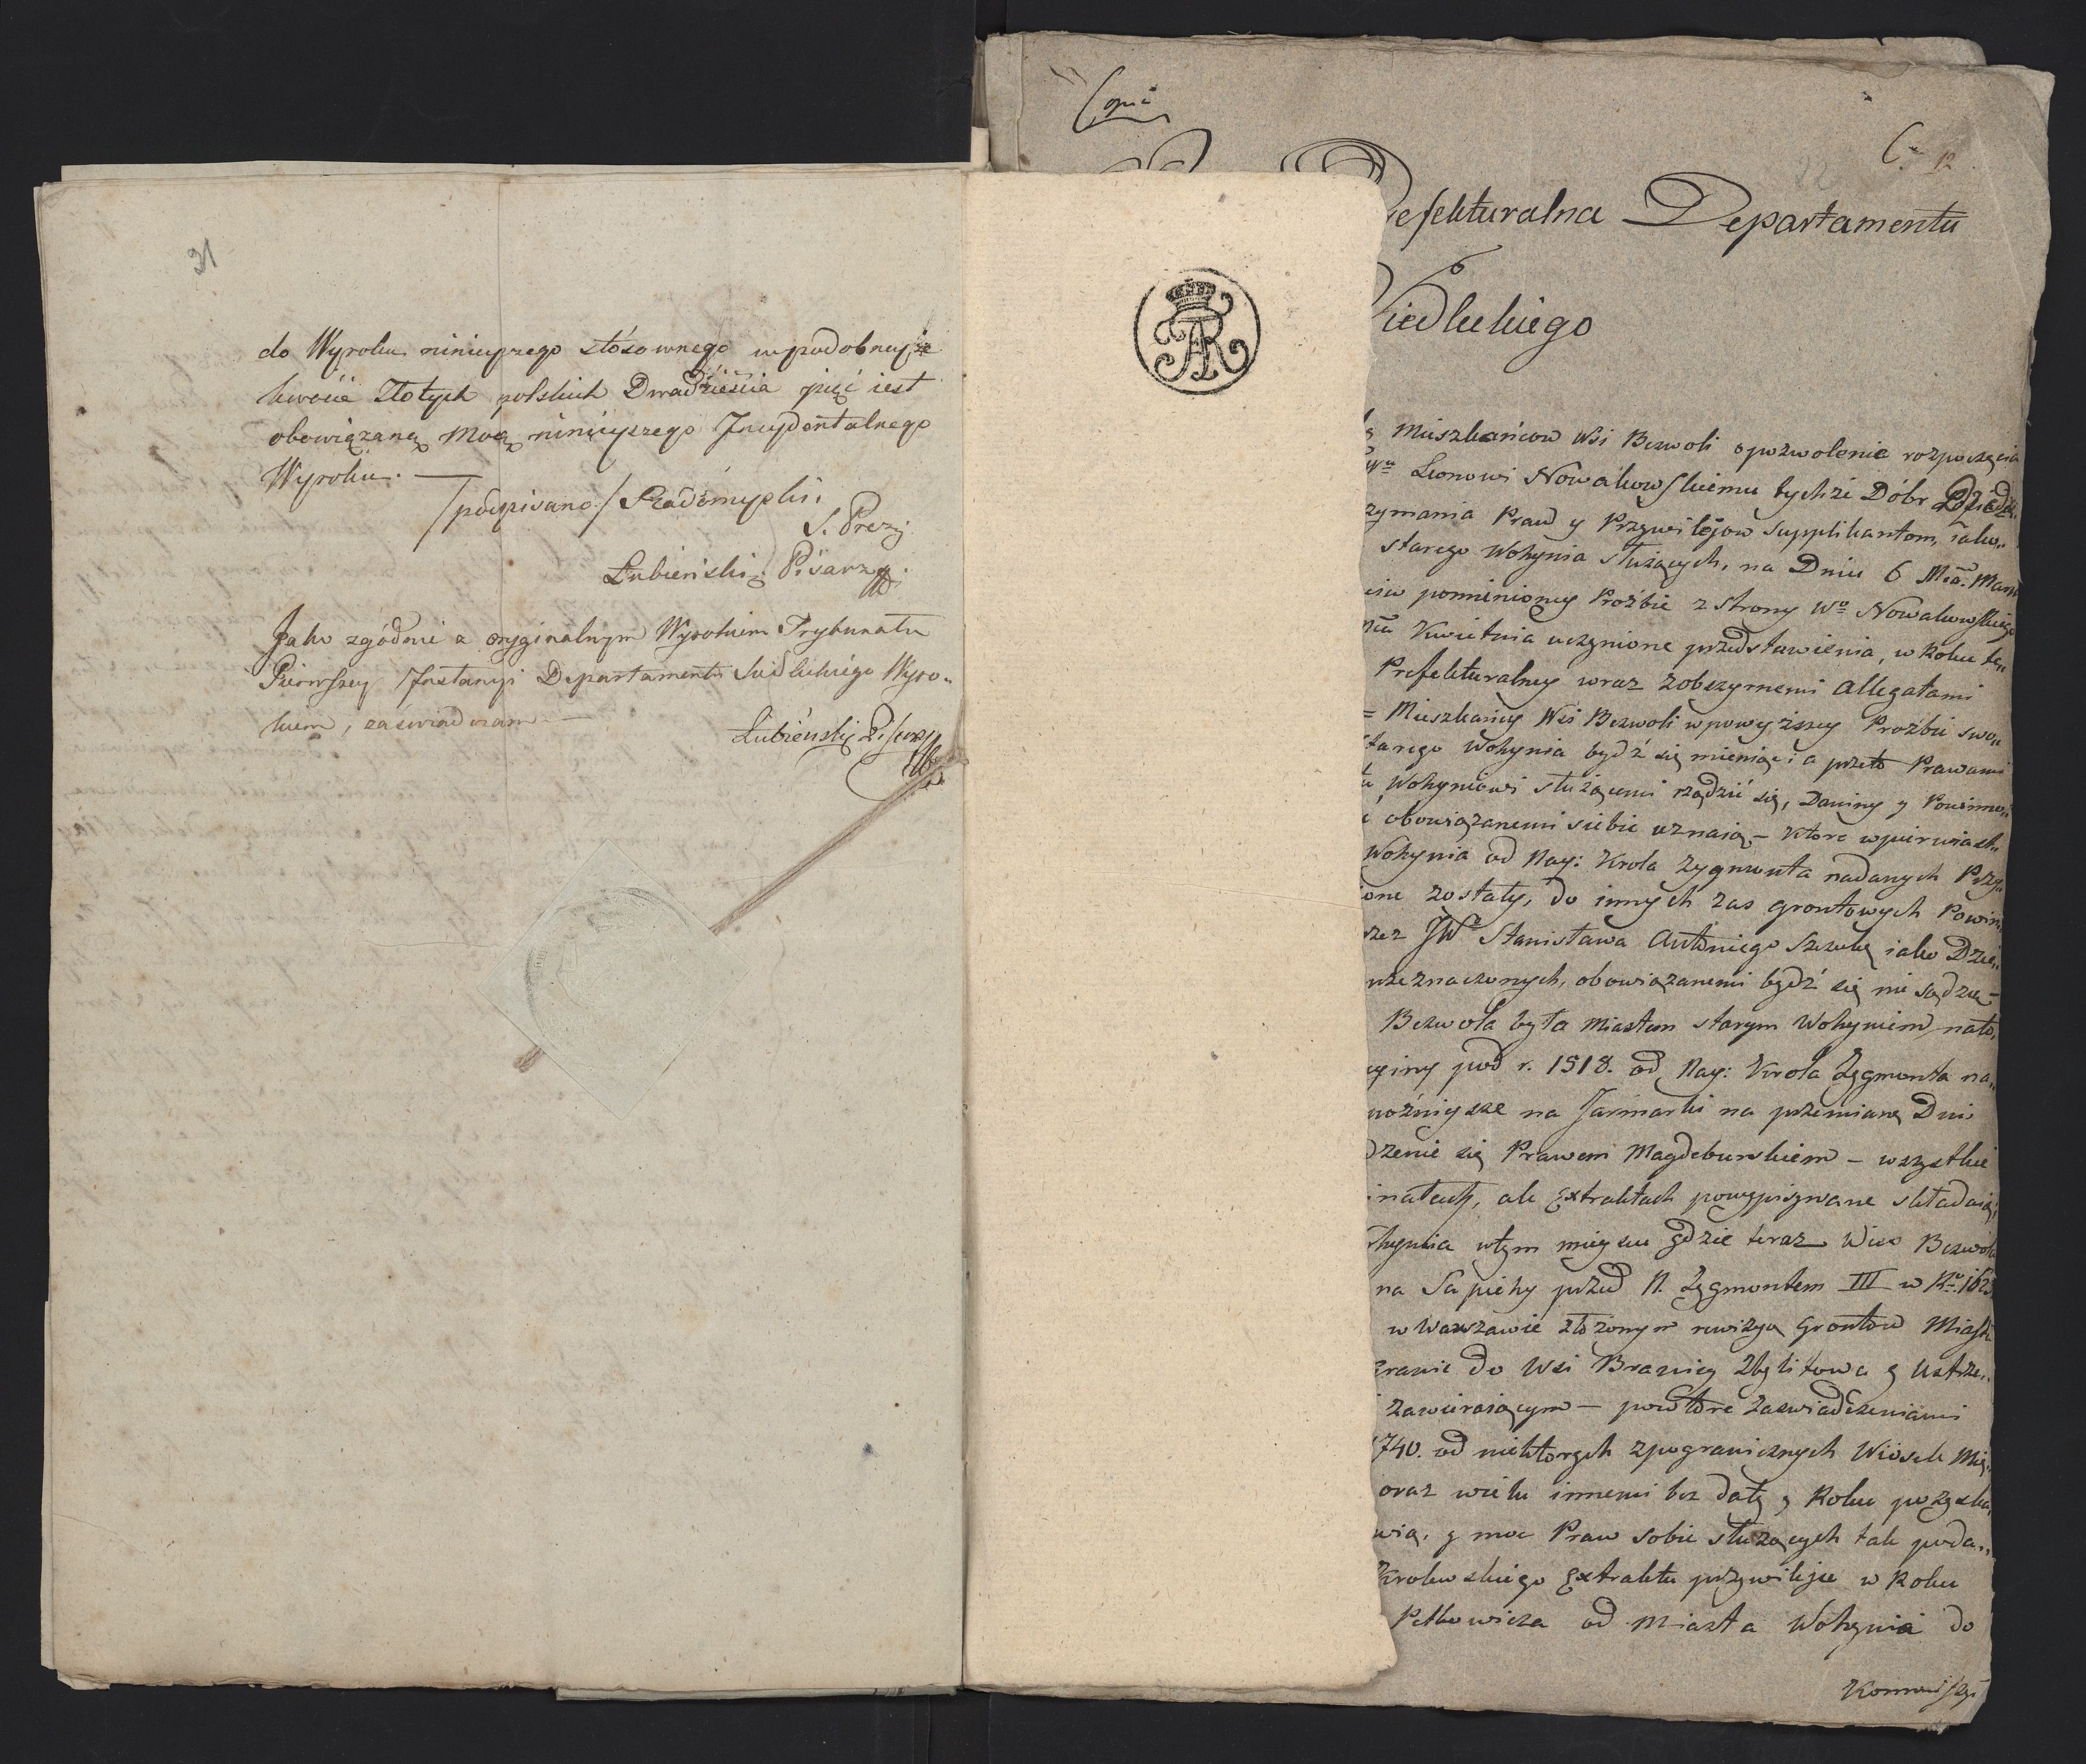 31
do Wyroku ninieyszego stósownego w podobneyże
kwocie Złotych polskich Dwadzieścia pięć iest
obowiązaną mocą ninieyszego Incydentalnego
Wyroku. —
/podpisano/ Radomyski.
S. Prez:
Łubieński Pisarz
Jako zgodnie z oryginalnym Wyrokiem Trybunału
Pierwszey Instancyi Departamentu Siedleckiego Wyro„
kiem, zaświadczam —
Łubieński Pisarz
Copia
12
efekturalna Departamentu
iedleckiego
Mieszkańcow Wsi Bezwoli o pozwolenie rozpoczęcia
Leonowi Nowakowskiemu tychże Dóbr Dziedzi„
zymania Praw y Przywilejow Supplikantom, iako„
starego Wohynia służących, na Dniu 6 Mca. Marc
pomienioney Prożbie z strony Wo Nowakowskiego
Kwietnia uczynione przedstawienia, w Roku te„
Prefekturalney wraz z obszernemi Allegatami
= Mieszkańcy Wsi Bezwoli w powyższey Prożbie swo„
starego Wohynia bydź się mieniąc i a przeto Prawami
Wohyniowi służącemi rządzić się, Daniny y Powinno„
obowiązanemi siebie uznaią – które w pierwiast„
Wohynia od Nay: Krola Zygmunta nadanych Przy„
one zostały, do innych zas grontowych Powin„
rzez JW Stanisława Antoniego Szczukę iako Dzie„
rzeznaczonych, obowiązanemi bydź się nie sądzą –
Bezwola była Miastem starym Wohyniem, nato
pod r. 1518. od Nay: Krola Zygmonta na„
poźnieysze na Jarmarki na przemianę Dni
dzenie się Prawem Magdeburskiem – wszystkie
inałach, ale Extraktach powypisywane składaią;
hynia w tym mieyscu gdzie teraz Wies Bezwola
na Sapiehy przed N. Zygmontem III w Ru. 162
w Warszawie złożonym rewizya Grontow Miast
granic do Wsi Branicy Zbylitowa y Ustrze„
zawieraiącym – powtóre zaswiadczeniami
1740. od niektorych z pogranicznych Wiosek Mię„
oraz wielu innemi bez daty y Roku pozyska„
wią, y moc Praw sobie służących tak poda„
Krolewskiego Extraktu przywileju w Roku
Petkowicza od Miasta Wohynia do